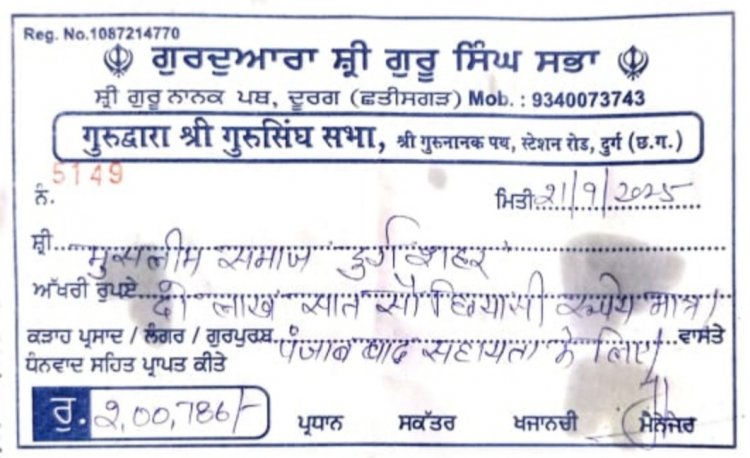 Reg. No.1087214770
ਗੁਰਦੁਆਰਾ ਸ਼੍ਰੀ ਗੁਰੂ ਸਿੰਘ ਸਭਾ
ਸ਼੍ਰੀ ਗੁਰੂ ਨਾਨਕ ਪਥ, ਦੂਰਗ (ਛਤੀਸਗੜ) Mob. : 9340073743
गुरुद्वारा श्री गुरुसिंघ सभा, श्री गुरुनानक पथ, स्टेशन रोड, दुर्ग (छ.ग.)
5149
ਨੰ. ਮਿਤੀ 21/9/2025
ਸ਼੍ਰੀ. मुसलीम समाज दुर्ग शहर
ਅੱਖਰੀ ਰੁਪਏ दो लाख सात सौ छियासी रूपये मात्र।
ਕੜਾਹ ਪ੍ਰਸਾਦ / ਲੰਗਰ / ਗੁਰਪੁਰਬ पंजाब बाढ़ सहायता के लिए ਵਾਸਤੇ
ਧੰਨਵਾਦ ਸਹਿਤ ਪ੍ਰਾਪਤ ਕੀਤੇ
ਰੁ. 2,00,786/- ਪ੍ਰਧਾਨ ਸਕੱਤਰ ਖਜਾਨਚੀ ਮੈਨੇਜਰ